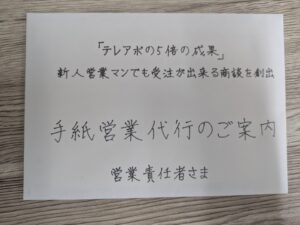 「テレアポの5倍の成果」
新人営業マンでも受注が出来る商談を創出
手紙営業代行のご案内
営業責任者さま